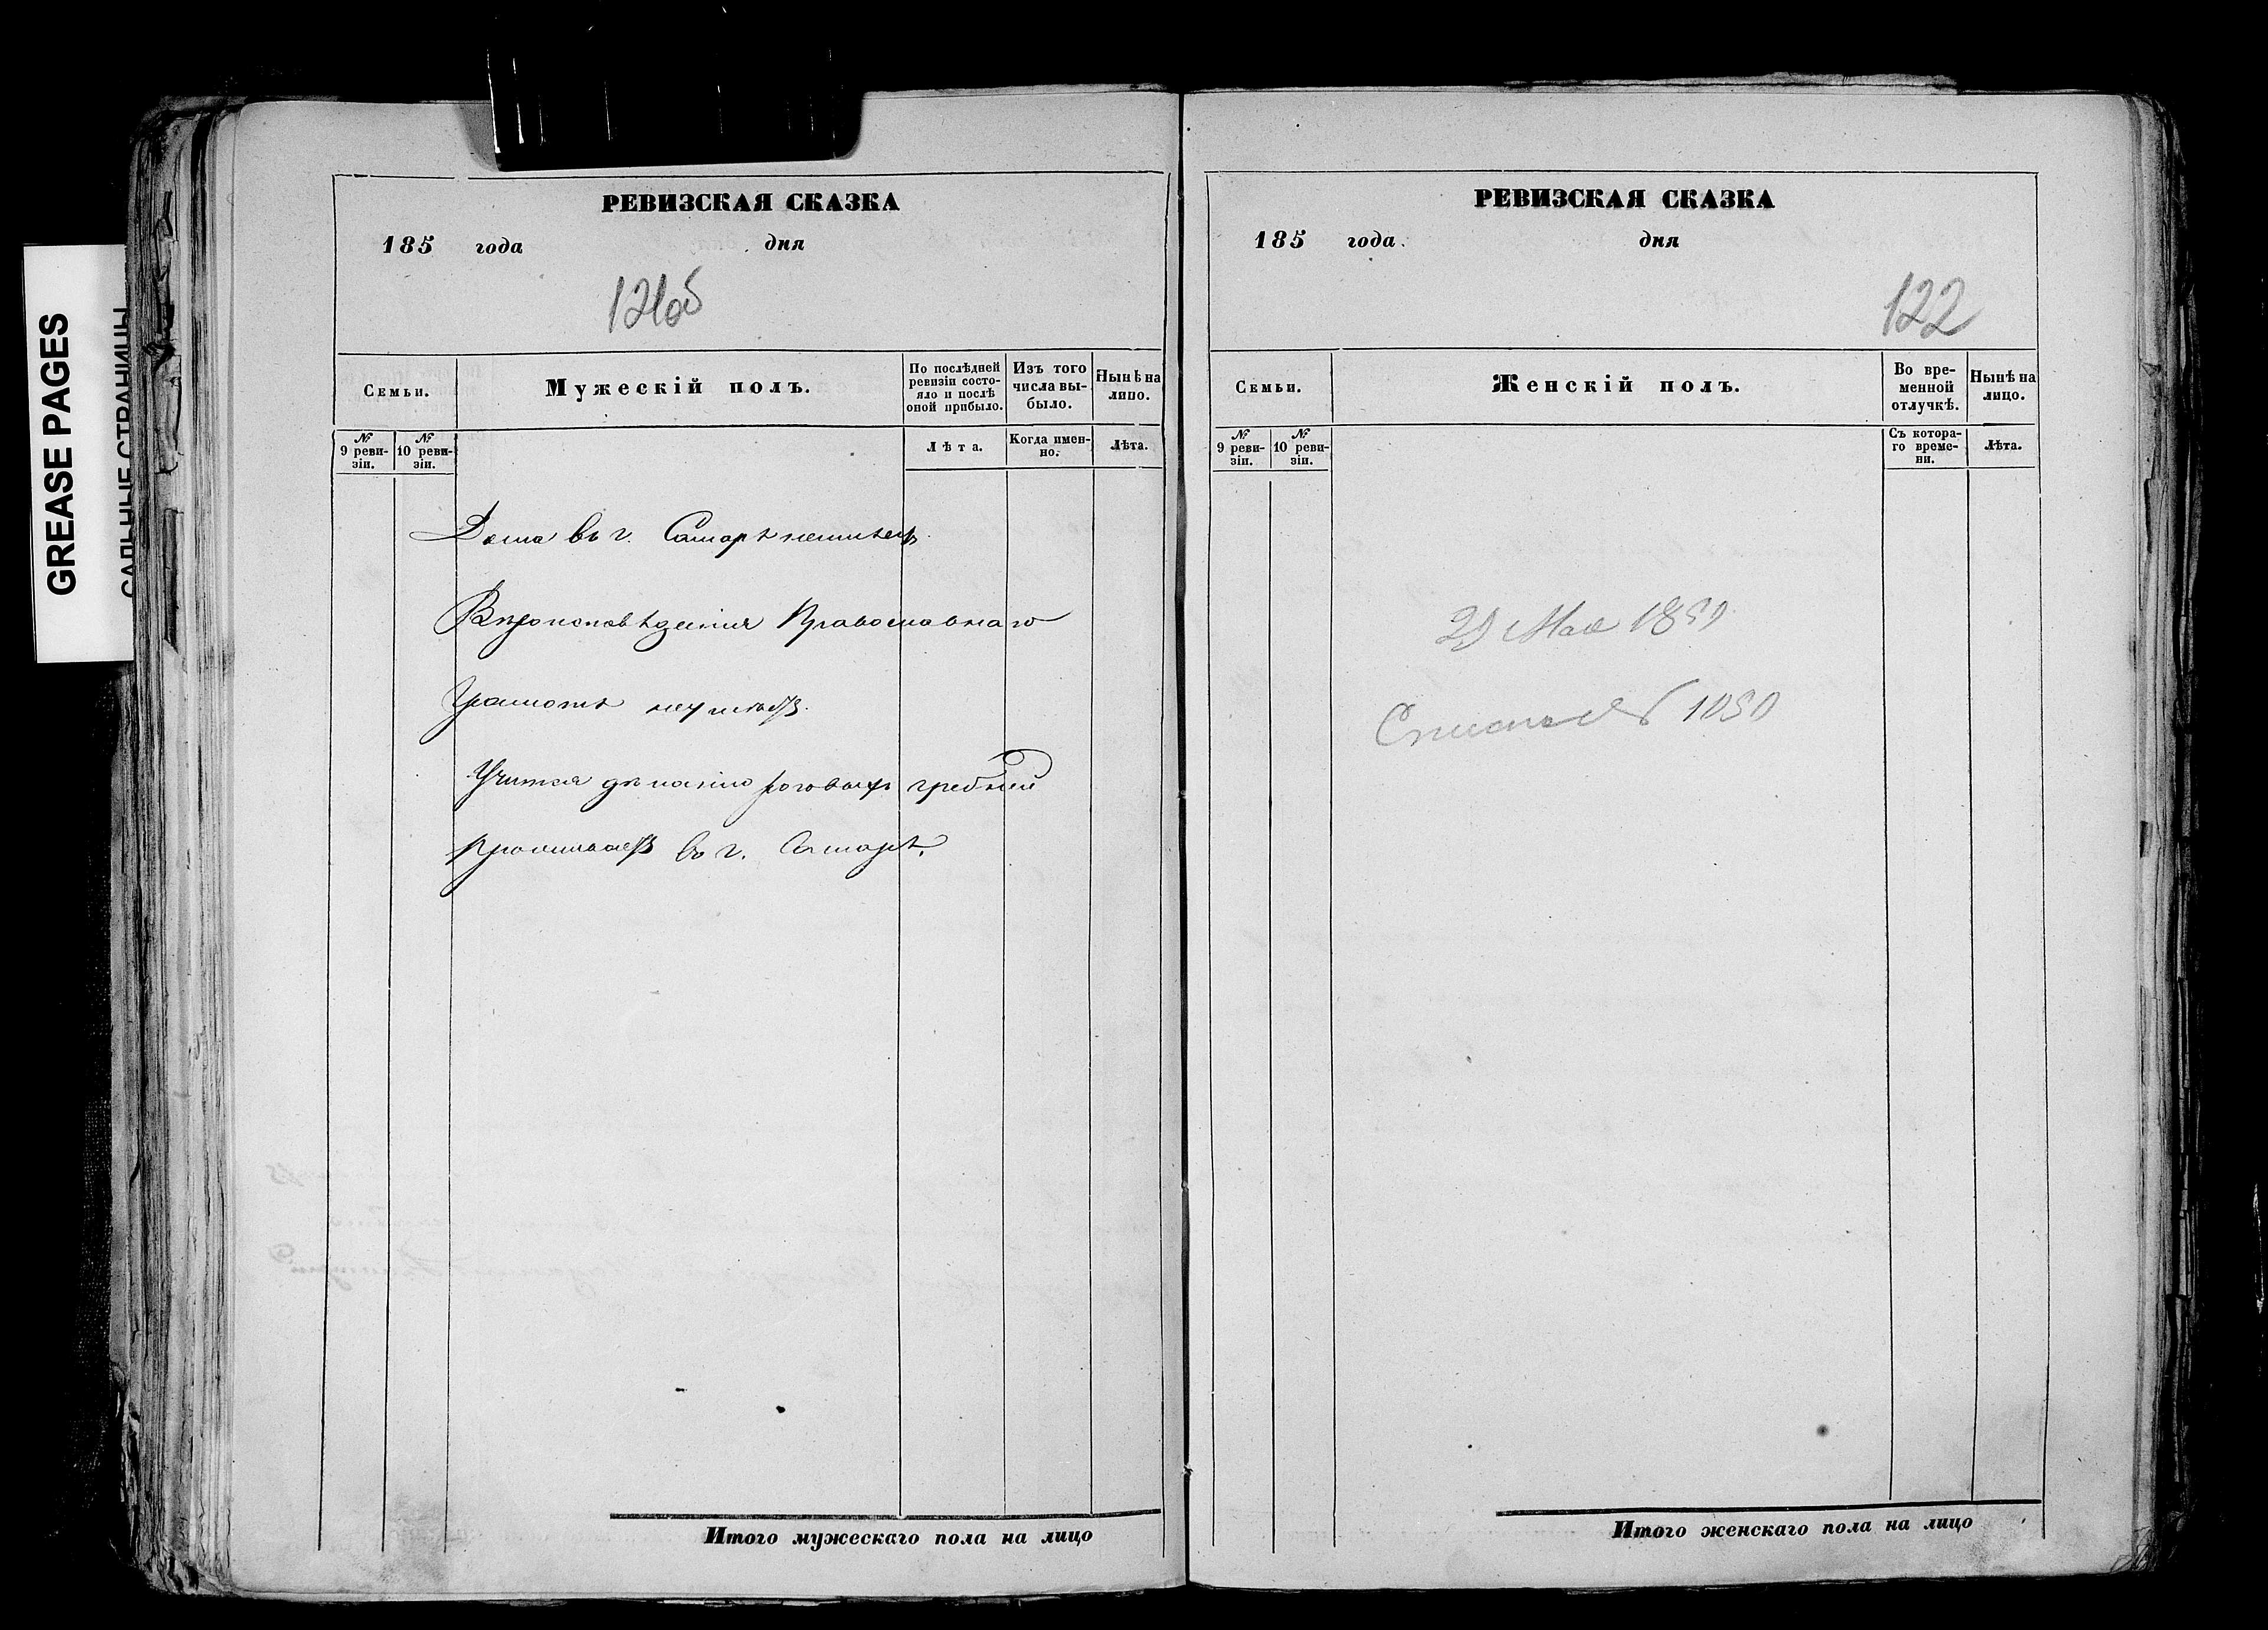 GREASE PAGES
САЛЬНЫЕ СТРАНИЦЫ
РЕВИЗСКАЯ СКАЗКА
185 года дня
121об
Семьи.
Мужескій полъ.
По послѣдней ревизіи состояло и послѣ оной прибыло.
Изъ того числа выбыло.
Нынѣ на лицо.
№ 9 ревизіи.
№ 10 ревизіи.
Лѣта.
Когда именно.
Лѣта.
Дома въ г. Самарѣ неимѣетъ
Вѣроисповѣданія Православнаго
Грамотѣ неумѣетъ.
Учится дѣланію роговыхъ гребней
проживаетъ въ г. Самарѣ.
Итого мужескаго пола на лицо
РЕВИЗСКАЯ СКАЗКА
185 года. дня
122
Семьи.
Женскій полъ.
Во временной отлучкѣ.
Нынѣ на лицо.
№ 9 ревизіи.
№ 10 ревизіи.
Съ котораго времени.
Лѣта.
29 Мая 1859
Итого женскаго пола на лицо